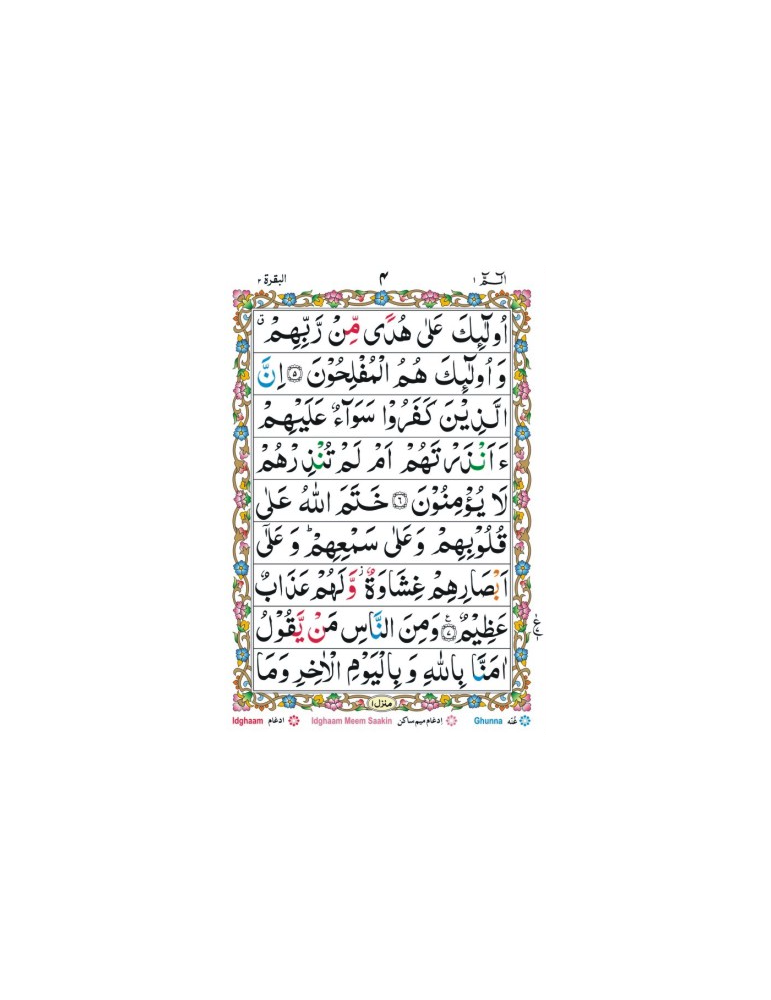 الٓمّٓ ۱ ۴ البقرة ۲
اُولٰٓئِكَ عَلٰى هُدًى مِّنْ رَّبِّهِمْ ۙ
وَ اُولٰٓئِكَ هُمُ الْمُفْلِحُوْنَ ۝۵ اِنَّ
الَّذِيْنَ كَفَرُوْا سَوَآءٌ عَلَيْهِمْ
ءَاَنْذَرْتَهُمْ اَمْ لَمْ تُنْذِرْهُمْ
لَا يُؤْمِنُوْنَ ۝۶ خَتَمَ اللّٰهُ عَلٰى
قُلُوْبِهِمْ وَعَلٰى سَمْعِهِمْ ؕ وَ عَلٰٓى
اَبْصَارِهِمْ غِشَاوَةٌ ؗ وَّلَهُمْ عَذَابٌ
عَظِيْمٌ ۝۷ وَمِنَ النَّاسِ مَنْ يَّقُوْلُ
اٰمَنَّا بِاللّٰهِ وَ بِالْيَوْمِ الْاٰخِرِ وَمَا
منزل ۱
Idghaam ادغام Idghaam Meem Saakin إدغام ميم ساكن Ghunna غُنّه